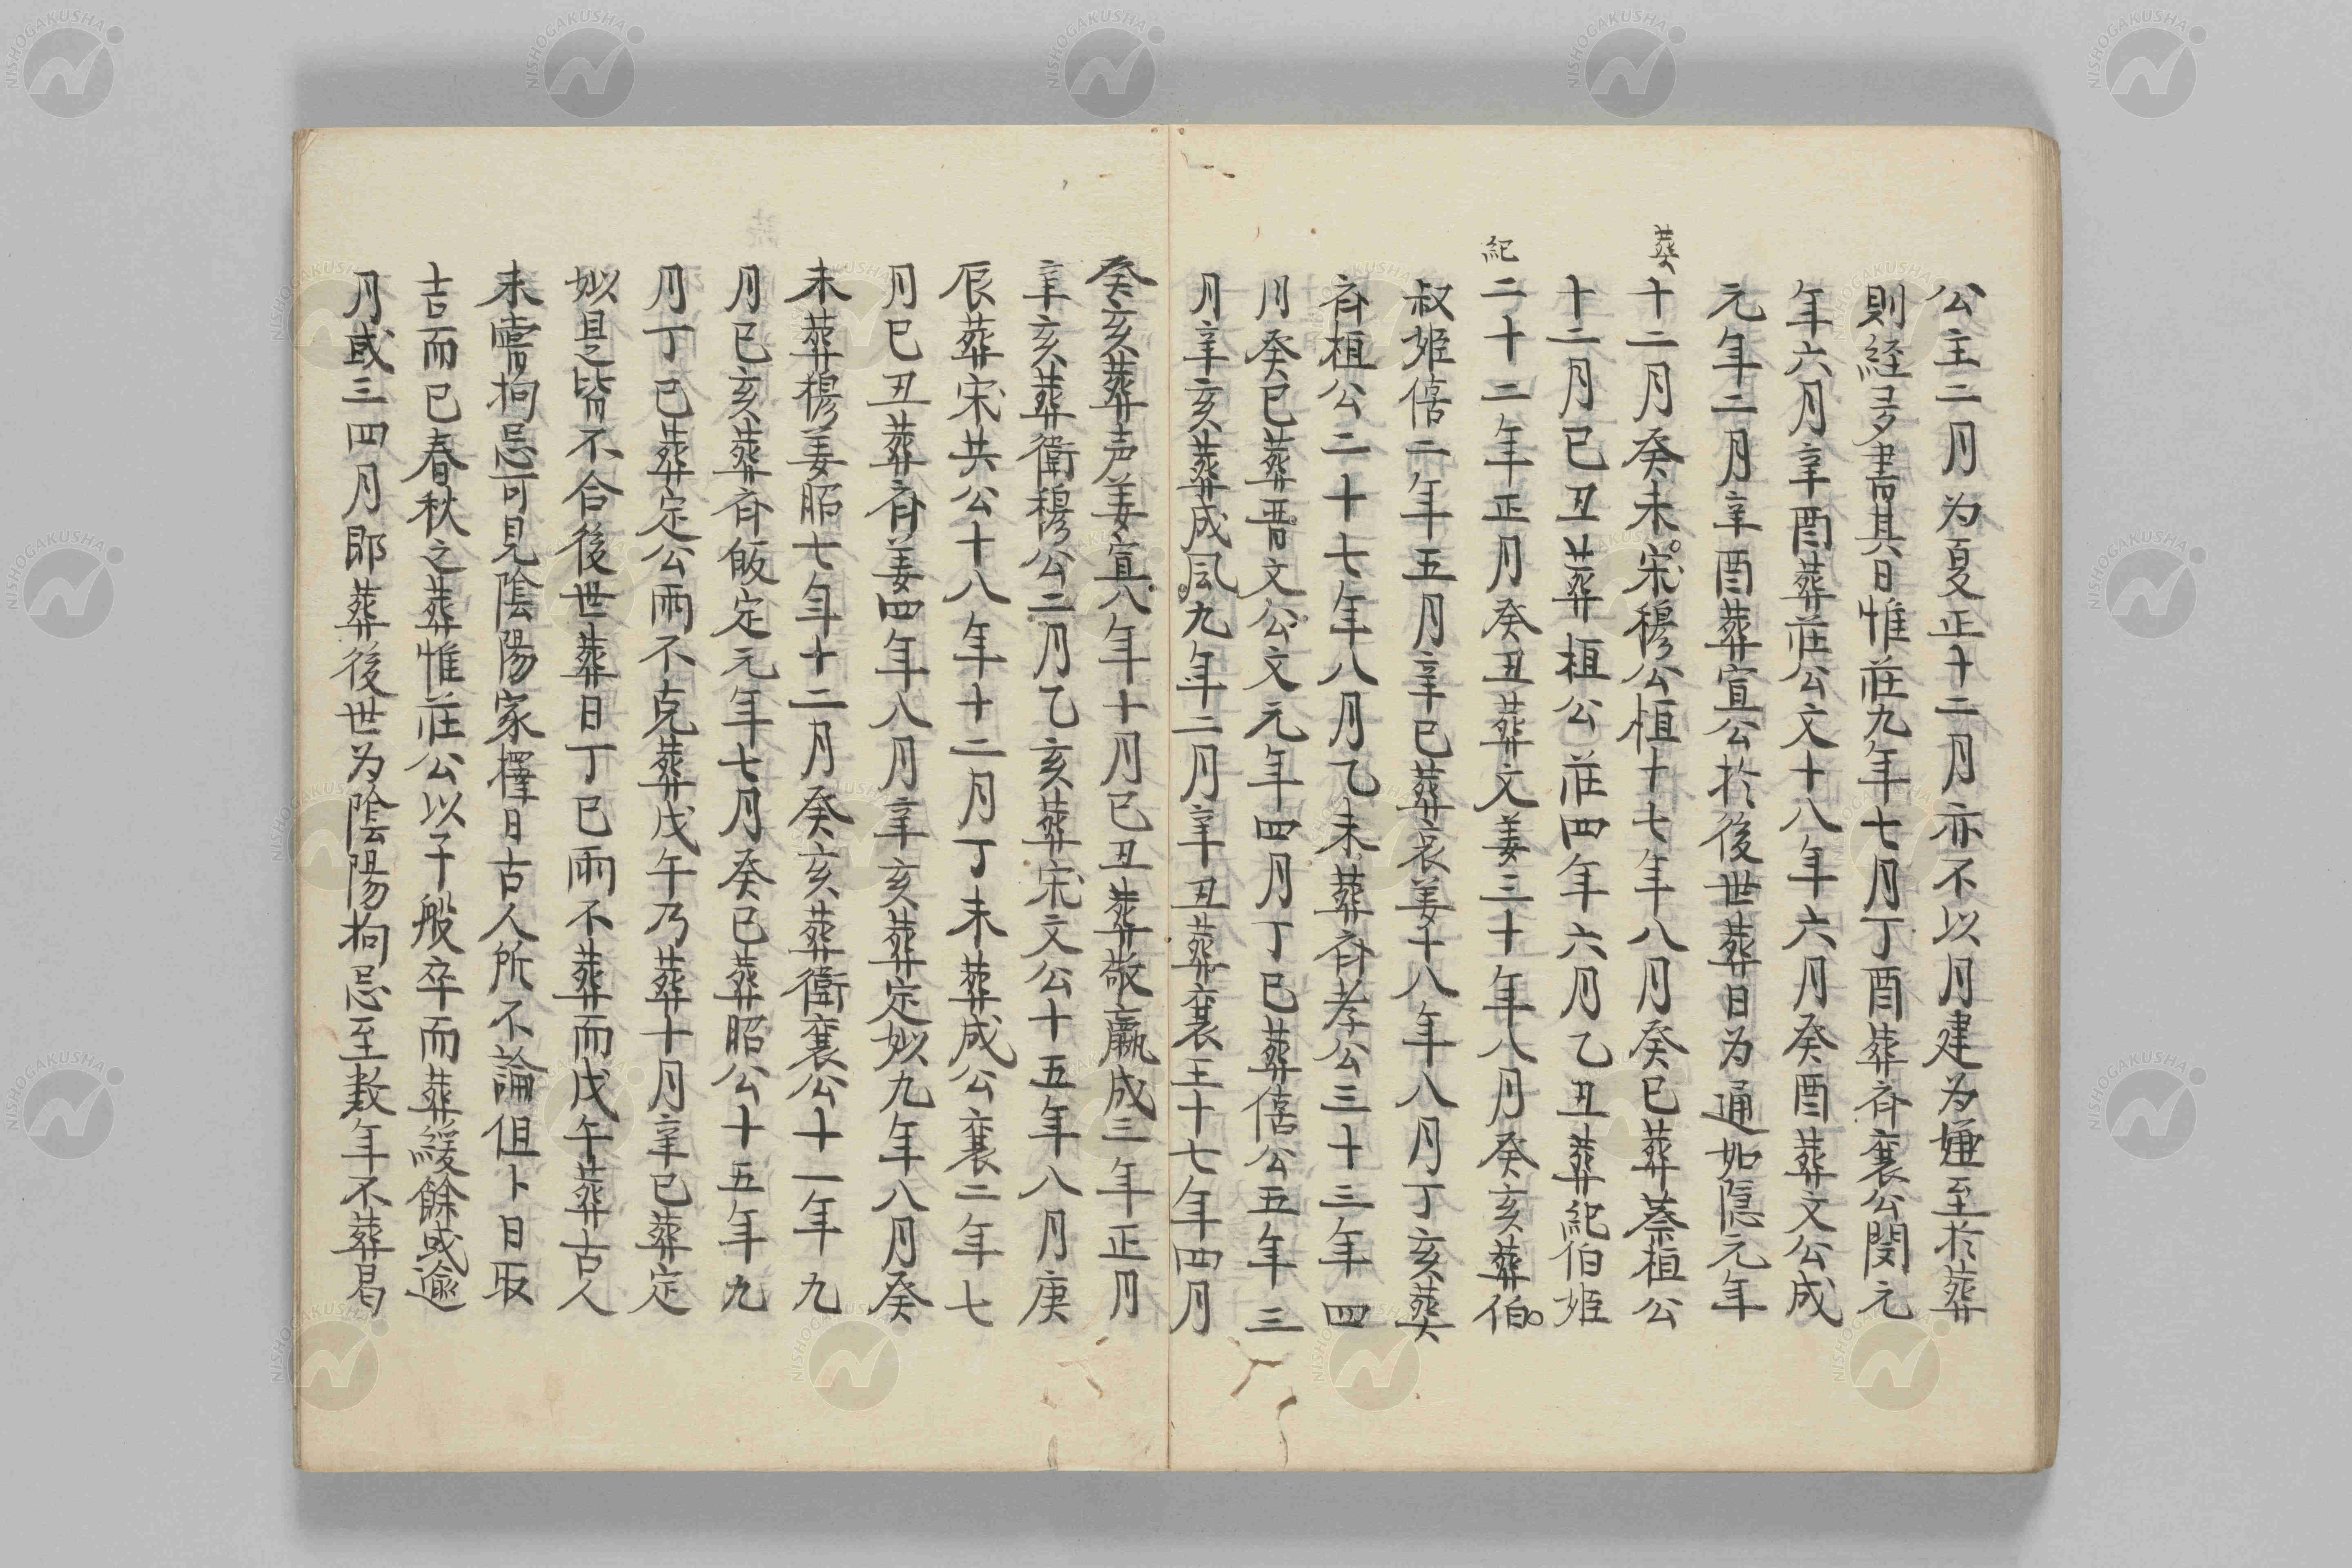 公主二月为夏正十二月亦不以月建为嫌至於葬
則経多書其日惟莊九年七月丁酉葬斉襄公閔元
年六月辛酉葬莊公文十八年六月癸酉葬文公成
元年二月辛酉葬宣公於後世葬日为通如隠元年
葬
十二月癸未宋穆公桓十七年八月癸巳葬蔡桓公
十二月已丑葬桓公莊四年六月乙丑葬紀伯姫
紀
二十二年正月癸丑葬文姜三十年八月癸亥葬伯
叔姫僖二年五月辛巳葬哀姜十八年八月丁亥葬
斉桓公二十七年八月乙未葬斉孝公三十三年四
月癸巳葬晋文公文元年四月丁巳葬僖公五年三
月辛亥葬成風九年二月辛丑葬襄王十七年四月
癸亥葬声姜宣八年十月已丑葬敬嬴成三年正月
辛亥葬衛穆公二月乙亥葬宋文公十五年八月庚
辰葬宋共公十八年十二月丁未葬成公襄二年七
月已丑葬斉姜四年八月辛亥葬定姒九年八月癸
未葬穆姜昭七年十二月癸亥葬衛襄公十一年九
月已亥葬斉皈定元年七月癸巳葬昭公十五年九
月丁巳葬定公雨不克葬戊午乃葬十月辛巳葬定
姒是皆不合後世葬日丁巳雨不葬而戊午葬古人
未甞拘忌可見陰陽家擇日古人所不論但卜日取
吉而已春秋之葬惟莊公以子般卒而葬緩餘或逾
月或三四月即葬後世为陰陽拘忌至数年不葬曷
NISHOGAKUSHA